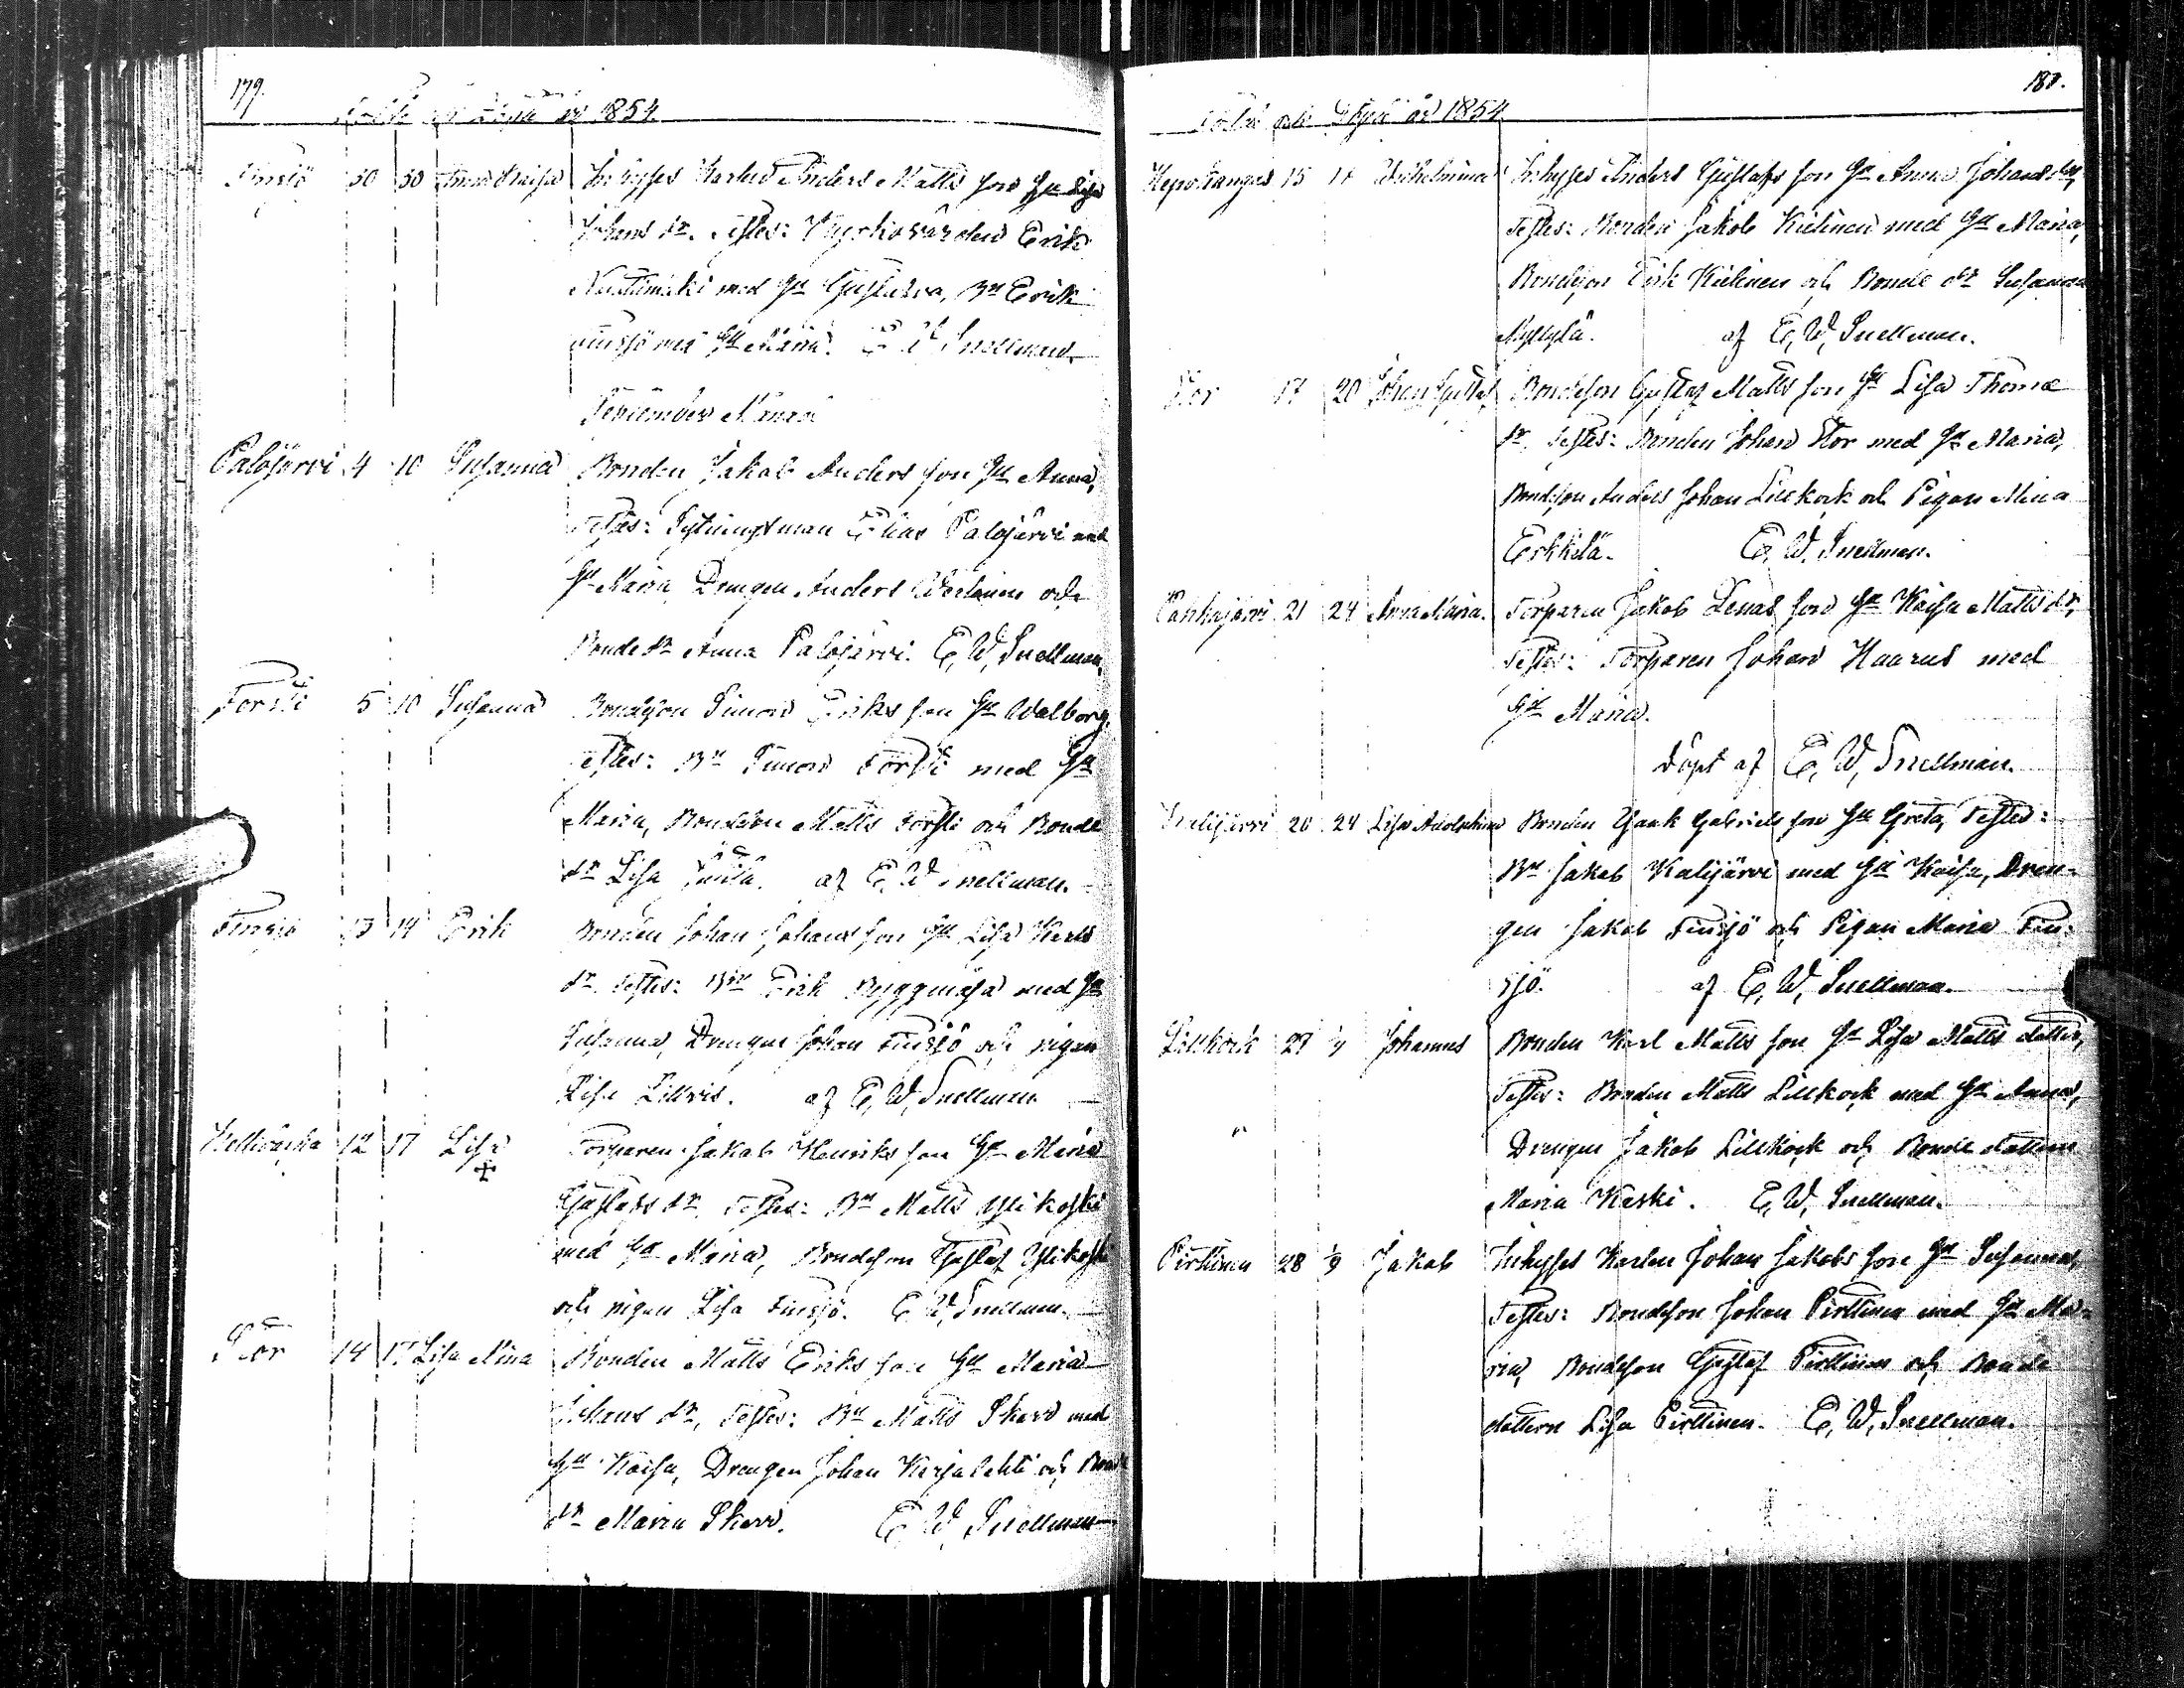 179.
år 1854
Finsjö 30 30 Inhyses Karlen Anders Matts son Hu Lisa
Johans dr. Testes: Kyrkovärden Erik
med Hu Gustava, Bn Erik
Finsjö med Hu Maria. E. W. Snellman
September Månad
Palojärvi 4 10 Susanna Bonden Jakob Anders son Hu Anna,
Testes: Elias Palojärvi med
Hu Maria, Drengen Anders och
Bonde dr Anna Palojärvi. E. W. Snellman.
Försti 5 10 Susanna Bondeson Simon Eriks son Hu Walborg.
Testes: Bn Simon Försti med Hu
Maria, Bondeson Matts Försti och Bonde
dr Lisa af E. W. Snellman.
Finsjö 13 14 Erik Bonden Johan Johans son Hu Lisa Karls
dr. Testes: Bn Erik Byggmäsa med Hu
Susanna, Drengen Johan Finsjö och pigan
Lisa Lillvis. af E. W. Snellman
12 17 Lisa Torparen Jakob Henriks son Hu Maria
Gustafs dr. Testes: Bn Matts Ylikoski
med Hu Maria, Bondeson Gustaf Ylikoski
och pigan Lisa Finsjö. E. W. Snellman.
Stor 14 17 Lisa Mina Bonden Matts Eriks son Hu Maria
Johans dr, Testes: Bn Matts Skarv med
Hu Kaisa, Drengen Johan Kirjalahti och Bonde
dr Maria Skarv. E. W. Snellman
180.
Födde och Döpte år 1854
Hepokangas 15 17 Wilhelmina Inhyses Anders Gustafs son Hu Anna Johans dr,
Testes: Bonden Jakob Kielinen med Hu Maria,
Bondeson Erik Kielinen och Bonde dr Susanna
Myllylä. af E. W. Snellman.
Stor 17 20 Johan Gustaf Bondeson Gustaf Matts son Hu Lisa Thomæ
dr. Testes: Bonden Johan Stor med Hu Maria,
Bondeson Anders Johan Lillkock och Pigan Mina
Erkkilä. E. W. Snellman.
Pankajärvi 21 24 Anna Maria. Torparen Jakob Lenas son Hu Kaisa Matts dr,
Testes: Torparen Johan Haarus med
Hu Maria.
Döpt af E. W. Snellman.
20 24 Lisa Adolphina Bonden Isaak Gabriels son Hu Greta, Testes:
Bn Jakob Kalijärvi med Hu Kaisa, Dren-
gen Jakob Finsjö och Pigan Maria Fin-
sjö. af E. W. Snellman.
Lillkock 27 1/9 Johannes Bonden Karl Matts son Hu Lisa Matts dotter,
Testes: Bonden Matts Lillkock med Hu Anna,
Drengen Jakob Lillkock och Bonde dottern
Maria Kaski. E. W. Snellman.
Pirttinen 28 1/9 Jakob Inhyses Karlen Johan Jakobs son Hu Susanna,
Testes: Bondeson Johan Pirttinen med Hu Ma-
ria, Bondeson Gustaf Pirttinen och Bonde
dottern Lisa Pirttinen. E. W. Snellman.